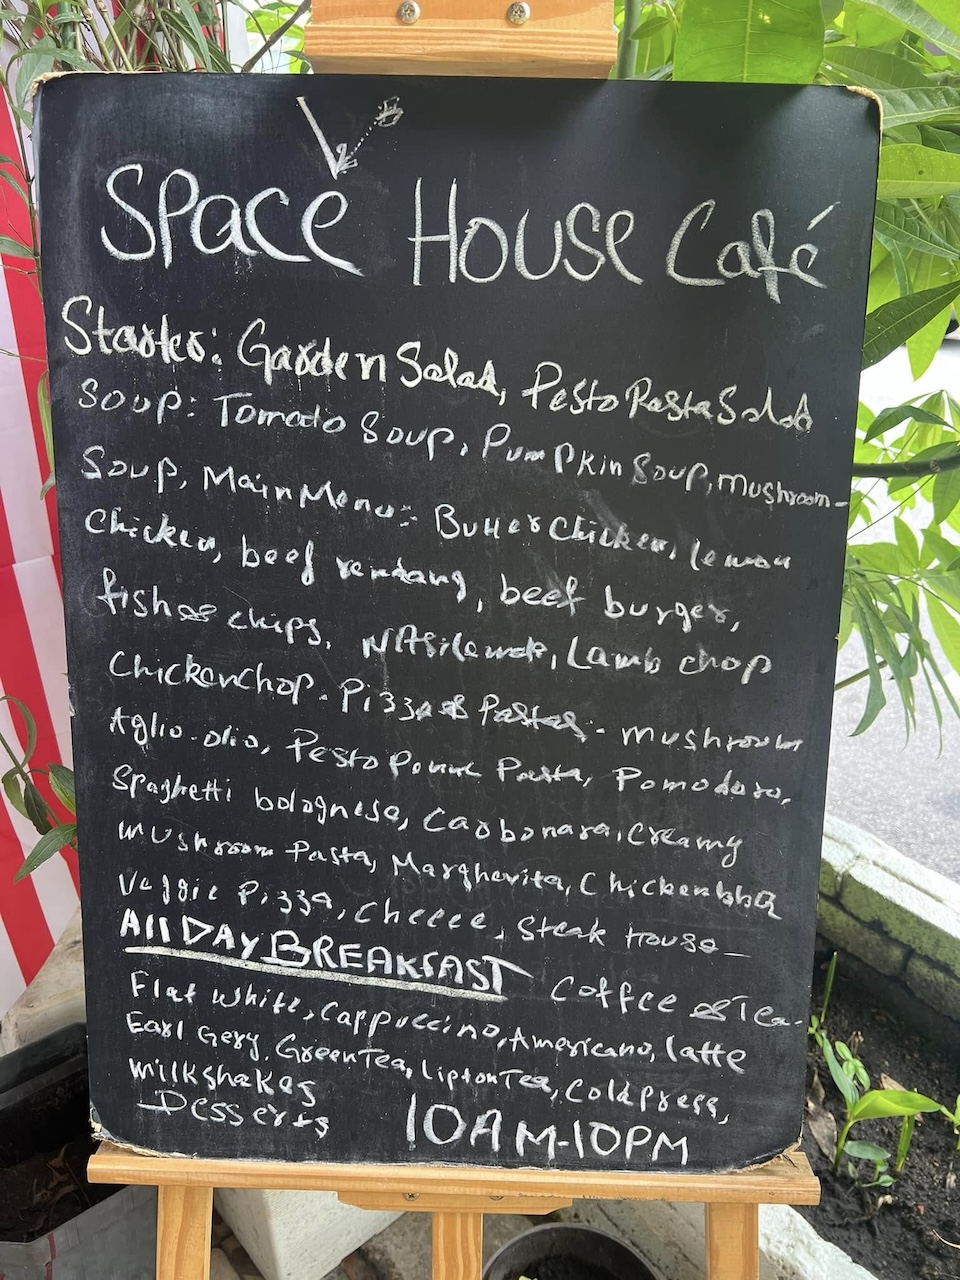 SPace House Café
Starter: Garden Salad, Pesto Pasta Salad
Soup: Tomato Soup, Pumpkin Soup, mushroom-
Soup, Main Menu: Butter Chicken, lemon
Chicken, beef rendang, beef burger,
fish & chips, NASi lemak, Lamb chop
Chicken Chop. Pizza & Pastas: mushroom
Aglio-olio, Pesto Penne Pasta, Pomodoro,
Spaghetti bolognese, Carbonara, Creamy
mushroom Pasta, Margherita, Chicken bbQ
Veggie Pizza, Cheese, Steak House
All DAY BREAKFAST Coffee & Tea.
Flat White, Cappuccino, Americano, latte
Earl Gery, Green Tea, Lipton Tea, Cold Press,
Milkshakes
Desserts 10AM-10PM